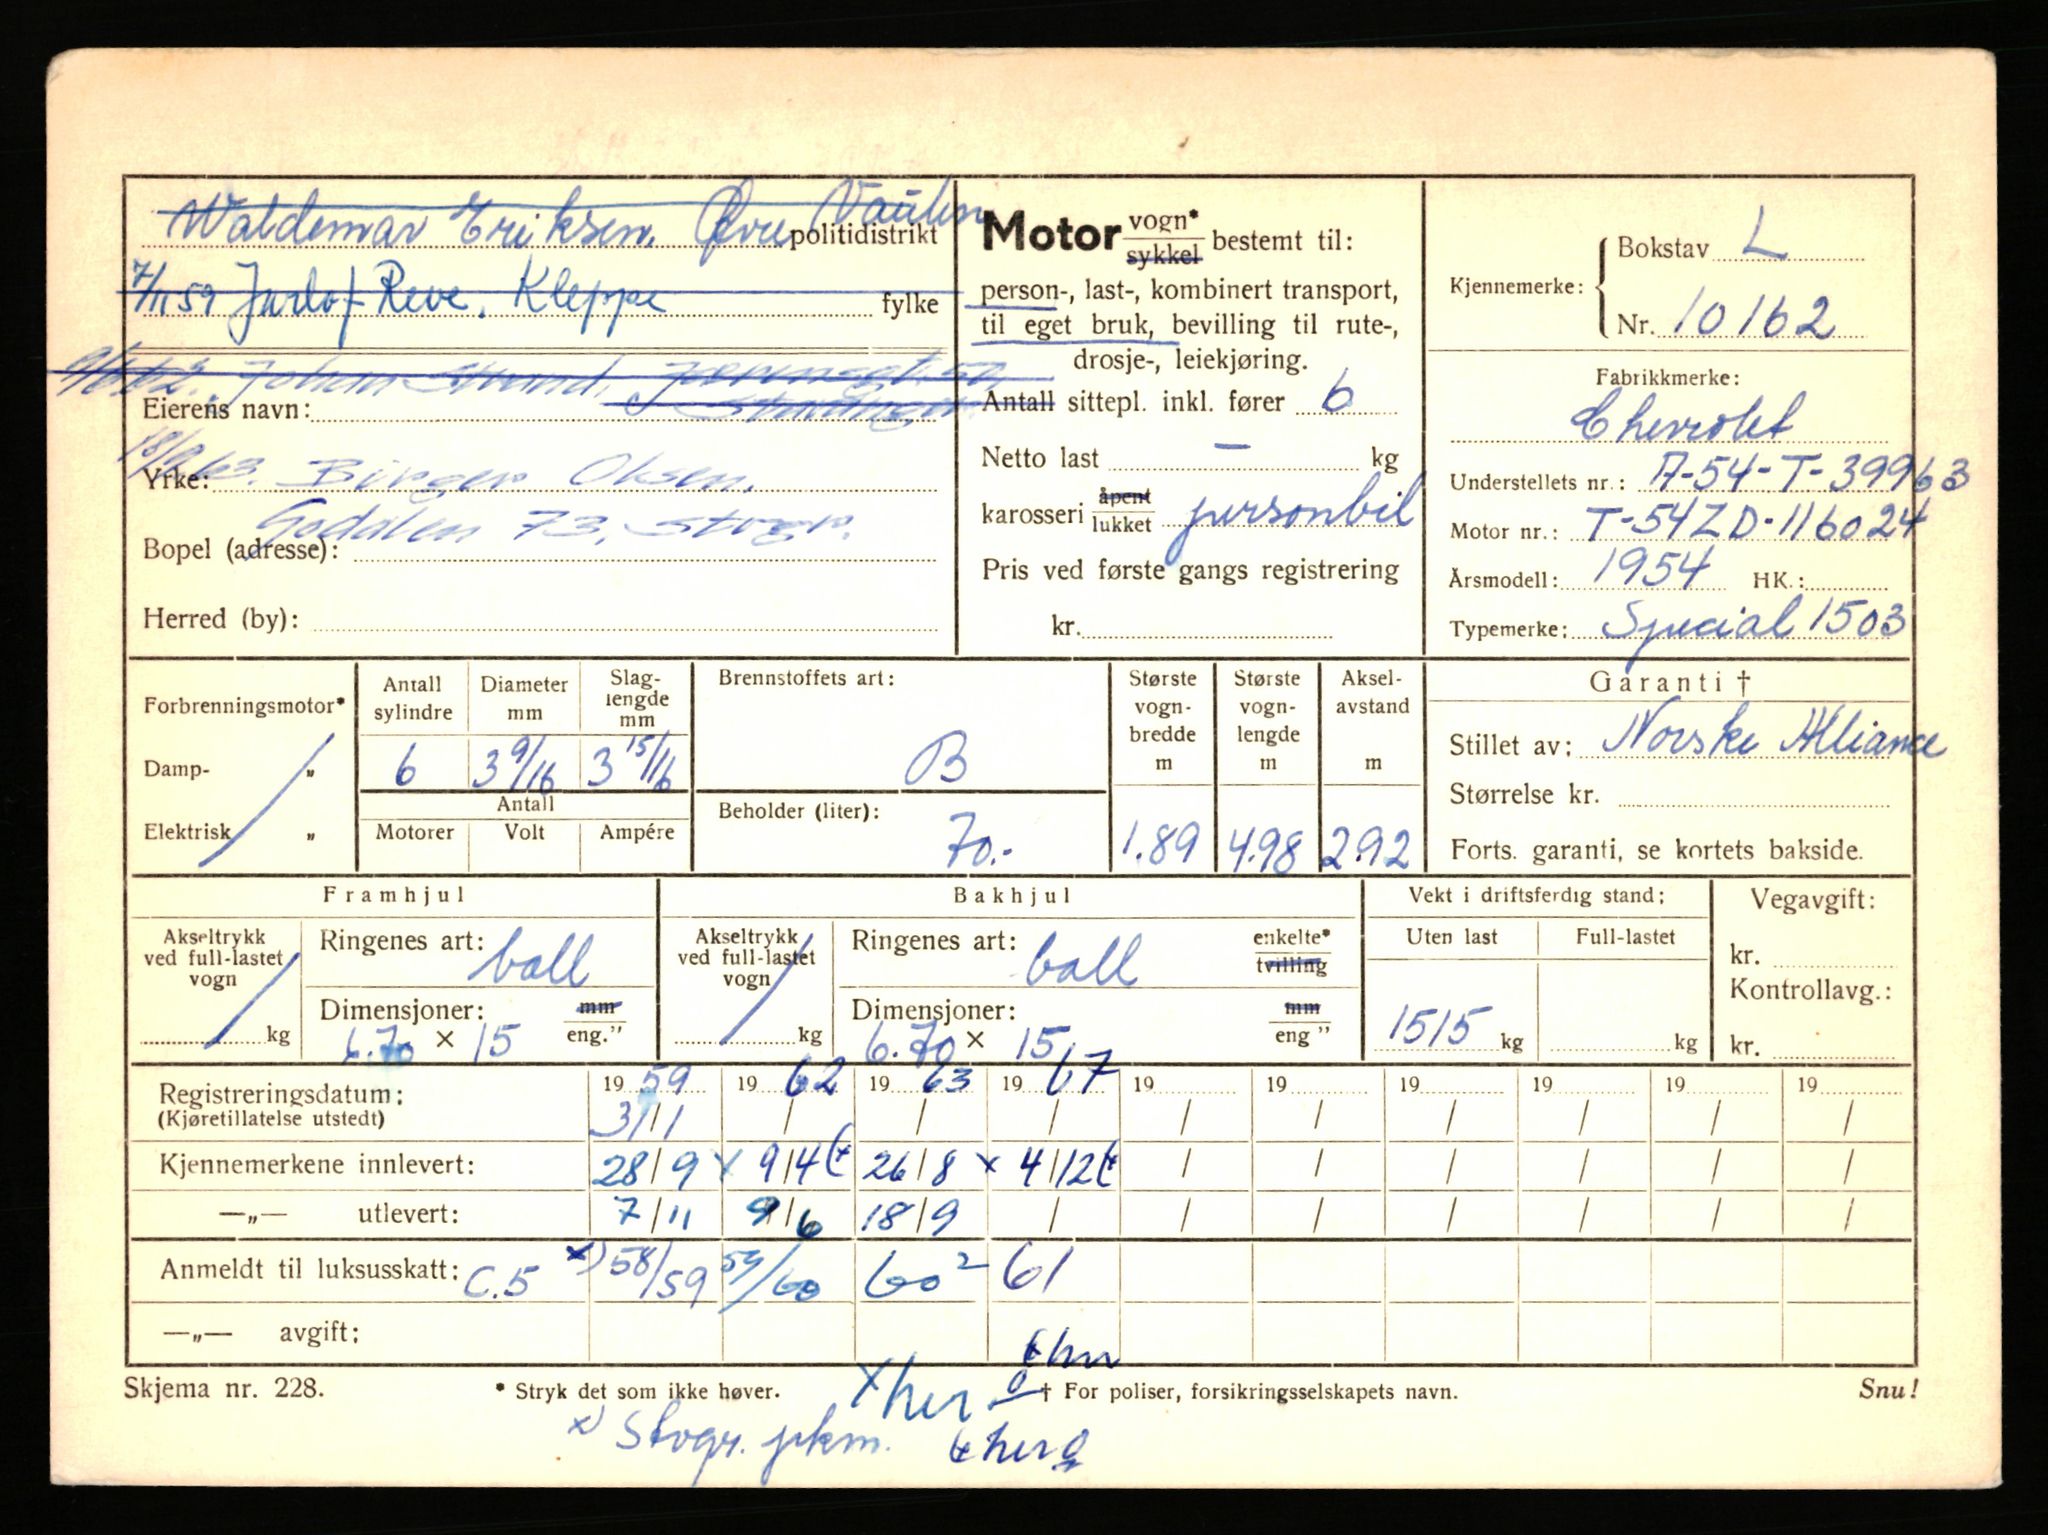 Waldemar Eriksen. Øvre Vaulen
politidistrikt
7/11 59 Jarlof Reve. Kleppe
fylke
9/6.62. Johan Strand.
Eierens navn:
18/9 63. Birger Olsen.
Yrke:
Godalen 73, Stvgr.
Bopel (adresse):
Herred (by):
Motor vogn* / sykkel bestemt til:
person-, last-, kombinert transport,
til eget bruk, bevilling til rute-,
drosje-, leiekjøring.
Antall sittepl. inkl. fører 6
Netto last — kg
karosseri åpent / lukket personbil
Pris ved første gangs registrering
kr.
Kjennemerke:
Bokstav L
Nr. 10162
Fabrikkmerke:
Chevrolet
Understellets nr.: A-54-T-39963
Motor nr.: T-54ZD-116024
Årsmodell: 1954 HK.:
Typemerke: Special 1503
Forbrenningsmotor*
Damp- "
Elektrisk "
Antall sylindre
6
Diameter mm
3 9/16
Slag-lengde mm
3 15/16
Antall
Motorer Volt Ampére
Brennstoffets art:
B
Beholder (liter):
70.-
Største vogn-bredde m
1.89
Største vogn-lengde m
4.98
Aksel-avstand m
2.92
Garanti †
Stillet av: Norske Alliance
Størrelse kr.
Forts. garanti, se kortets bakside.
Framhjul
Akseltrykk ved full-lastet vogn
kg
Ringenes art: ball
Dimensjoner: mm / eng."
6.70 × 15
Bakhjul
Akseltrykk ved full-lastet vogn
kg
Ringenes art: ball enkelte* / tvilling
Dimensjoner: mm / eng"
6.70 × 15
Vekt i driftsferdig stand:
Uten last Full-lastet
1515 kg kg
Vegavgift:
kr.
Kontrollavg.:
kr.
Registreringsdatum: 19 59 19 62 19 63 19 67 19 19 19 19 19 19
(Kjøretillatelse utstedt) 3/1 / / / / / / / / /
Kjennemerkene innlevert: 28/9 x 9/4 26/8 x 4/12 / / / / / /
—„— utlevert: 7/11 9/6 18/9 / / / / / / /
Anmeldt til luksusskatt: C.5 x) 58/59 59/60 60² 61
—„— avgift:
Skjema nr. 228.
* Stryk det som ikke høver.
x her
† For poliser, forsikringsselskapets navn.
Snu!
x) Stvgr. pkm.
her